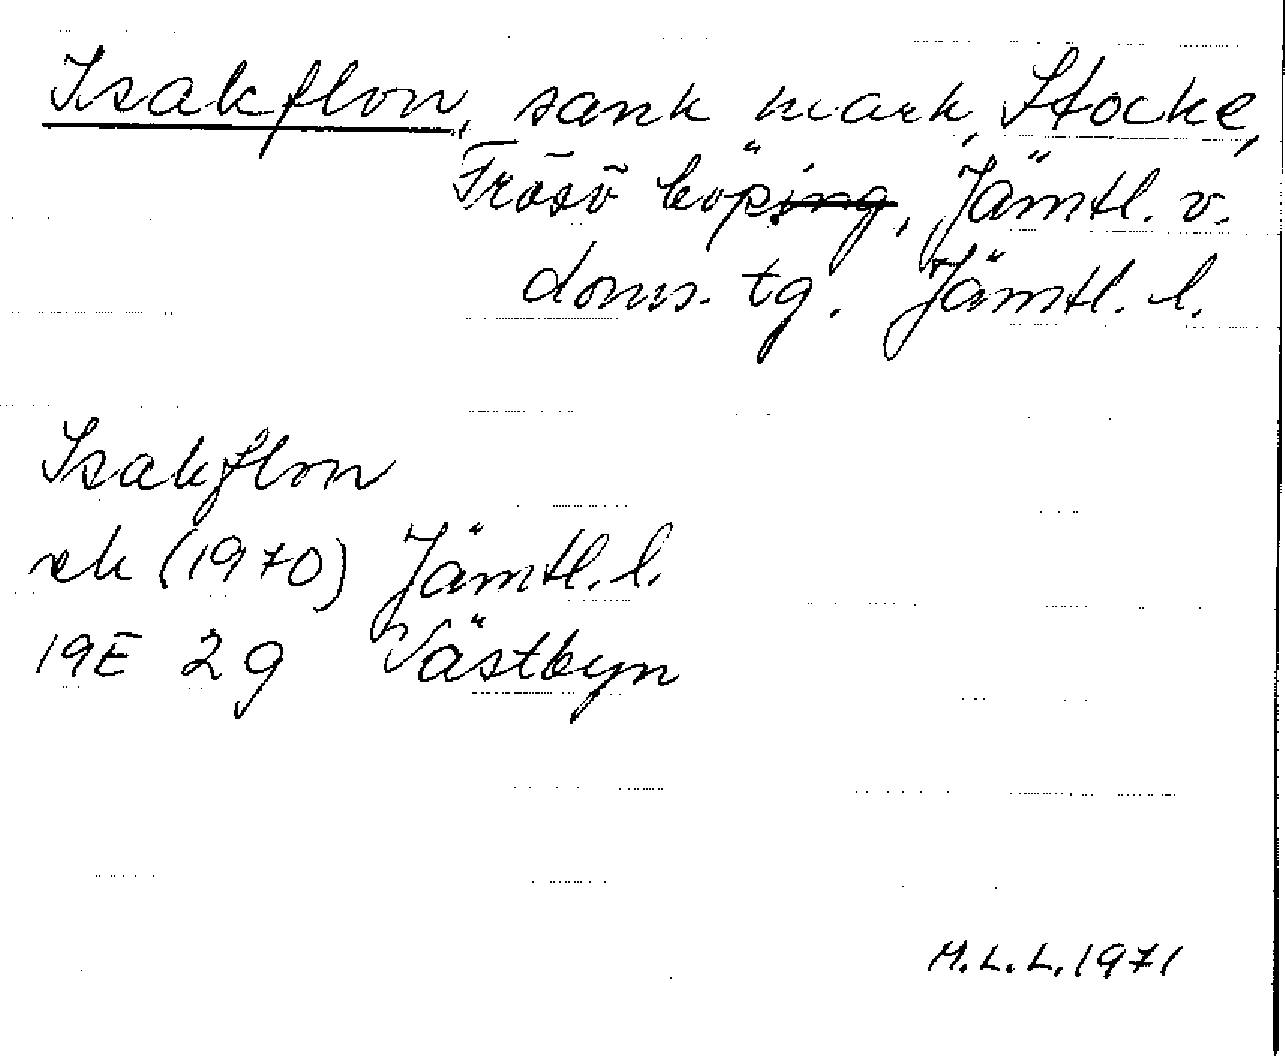 Isakflon, sank mark, Stocke,
Frösö köping, Jämtl. v.
doms. tg. Jämtl. l.
Isakflon
ek (1970) Jämtl. l.
19E 2g Västbyn
M.L.L. 1971